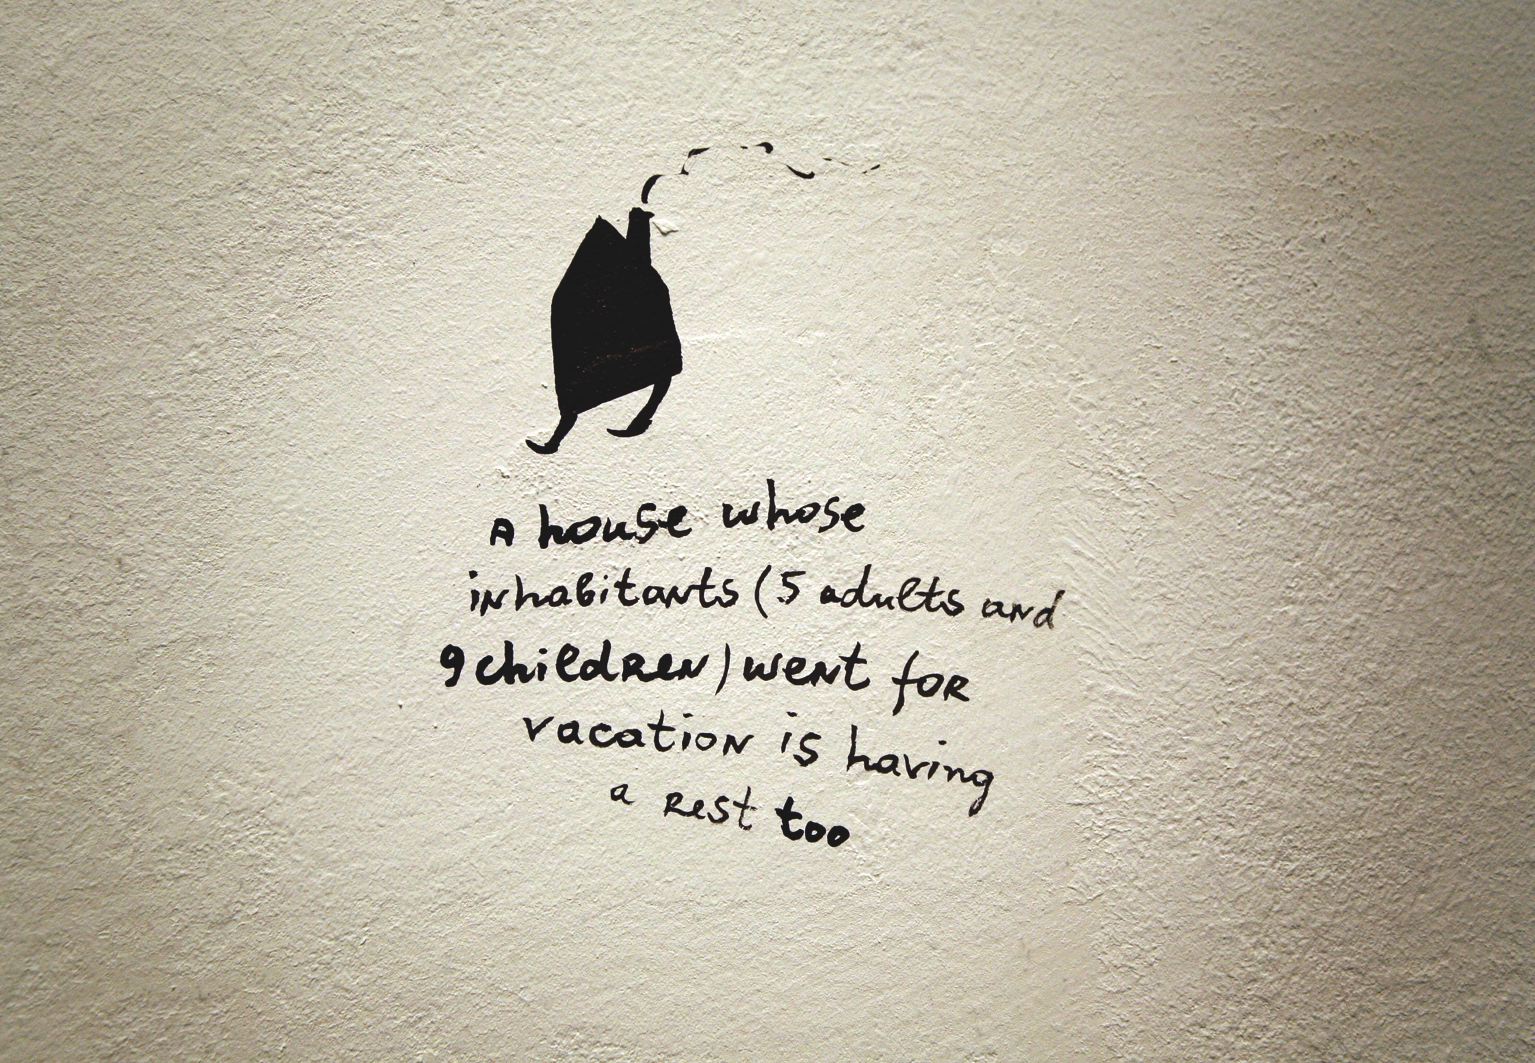 A house whose
inhabitants (5 adults and
9 children) went for
vacation is having
a rest too